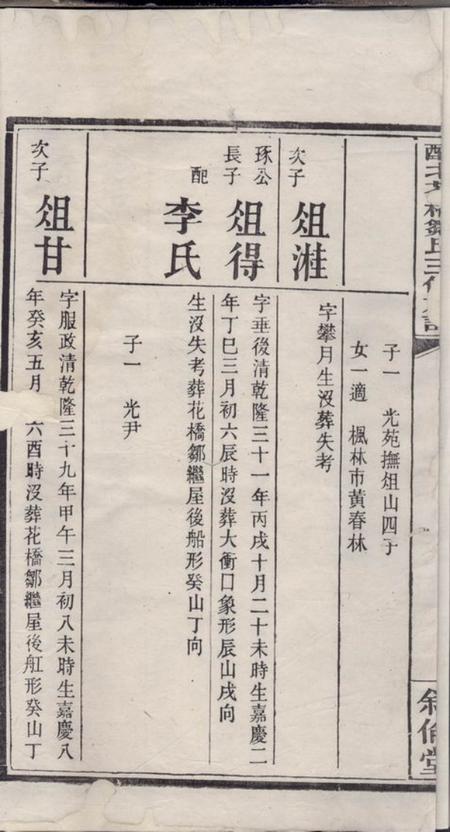 鄒氏三修支譜
敘倫堂
子一　光苑撫俎山四子
女一適　楓林市黃春林
次子　俎溎
字攀月生沒葬失考
琢公
長子　俎得
字垂後清乾隆三十一年丙戌十月二十未時生嘉慶二
年丁巳三月初六辰時沒葬大衝口象形辰山戌向
配　李氏
生沒失考葬花橋鄒繼屋後船形癸山丁向
子一　光尹
次子　俎甘
字服政清乾隆三十九年甲午三月初八未時生嘉慶八
年癸亥五月　六酉時沒葬花橋鄒繼屋後舡形癸山丁